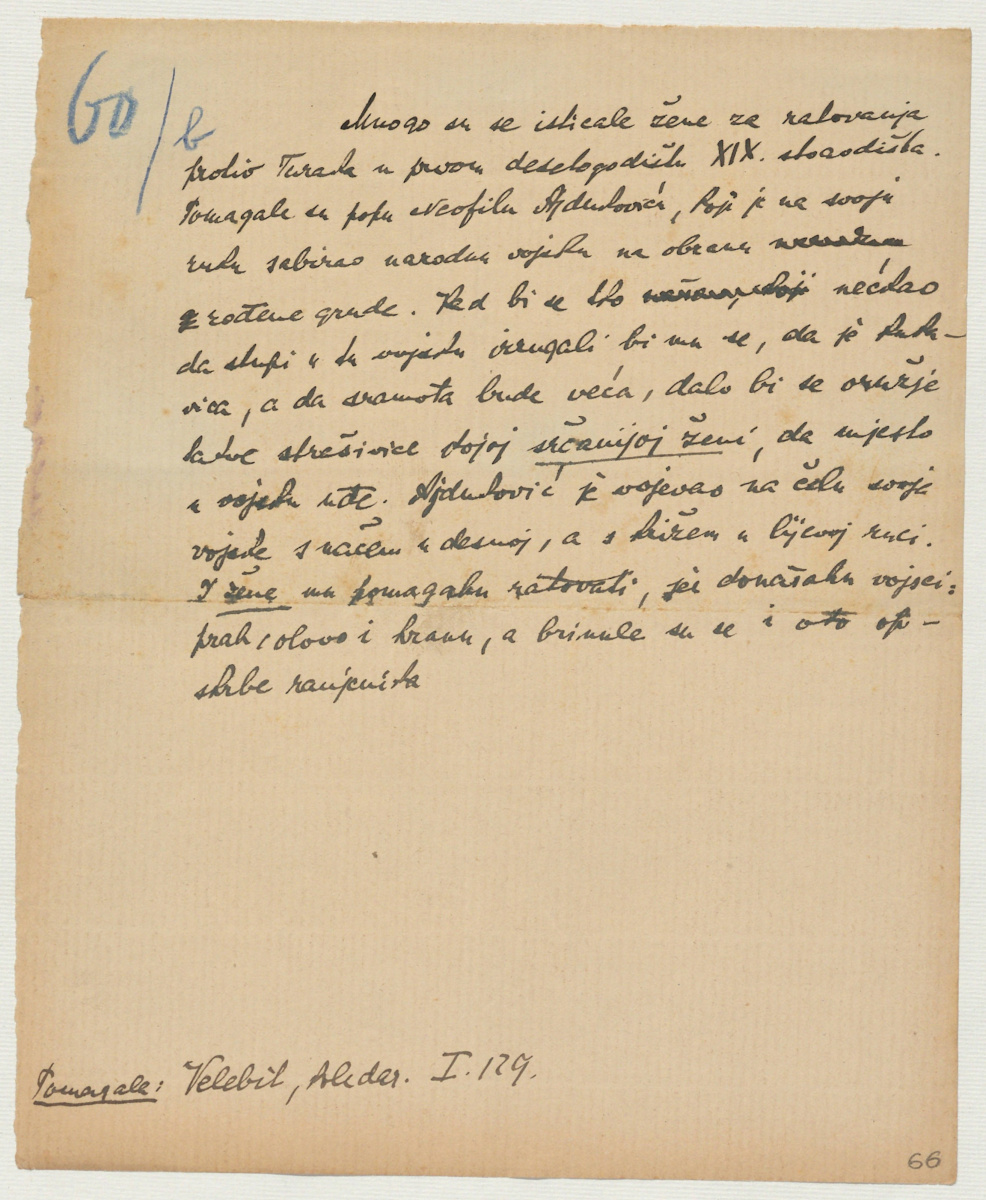 60/b
Mnogo su se isticale žene za ratovanja
protiv Turaka u prvom desetogodištu XIX. stogodišta.
Pomagale su popu Neofilu Ajdukoviću, koji je na svoju
ruku sabirao narodnu vojsku na obranu
rođene grude. Kad bi se tko nećkao
da stupi u tu vojsku izrugali bi mu se, da je kuka-
vica, a da sramota bude veća, dalo bi se oružje
takve strešivice kojoj srčanijoj ženi, da mjesto
u vojsku uđe. Ajduković je vojevao na čelu svoje
vojske s mačem u desnoj, a s križem u lijevoj ruci.
I žene mu pomagahu ratovati, jer donašahu vojsci:
prah, olovo i hranu, a brinule su se i oko op-
skrbe ranjenika
Pomagale: Velebit, Aledar. I. 129.
66